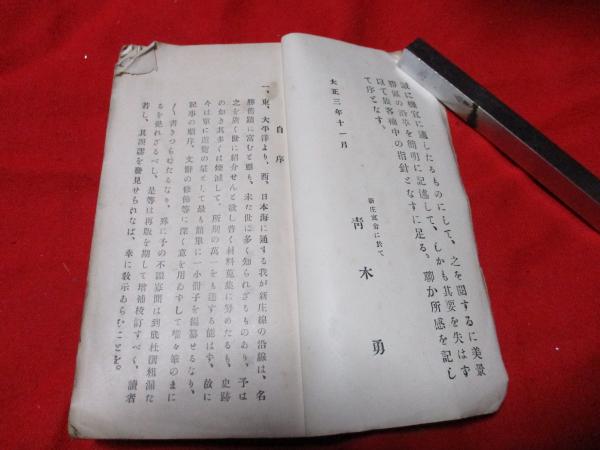 誠に機宜に適したるものにして、之を閲するに美景
勝區の沿革を簡明に記述して、しかも其要を失はず
以て旅客種中の指針となすに足る。聊か所感を記し
て序となす。
大正三年十一月
新庄宜舎に於て
青木勇
自序
一、東、大平洋より、西、日本海に通ずる我が新庄線の沿線は、名
勝舊蹟に富むと雖も、未だ世に多く知られざるものあり、予は
之を廣く世に紹介せんと欲し普く材料蒐集に努めたるも、史跡
の如き其多くは煙滅して、所期の萬一をも達する能はず、故に
今は單に遊覽の栞として最も簡單に一小冊子を編纂せるなり、
記事の順序、文辭の修飾等に深く意を用ゐずして唯を筆のまに
〱書きつらねたるなり、殊に予の不識寡聞は到底杜撰粗漏た
るを免れざるべし、是等は再版を期して增補校訂すべく、讀者
若し、其誤謬を發見せられなば、幸に敎示あらむことを。